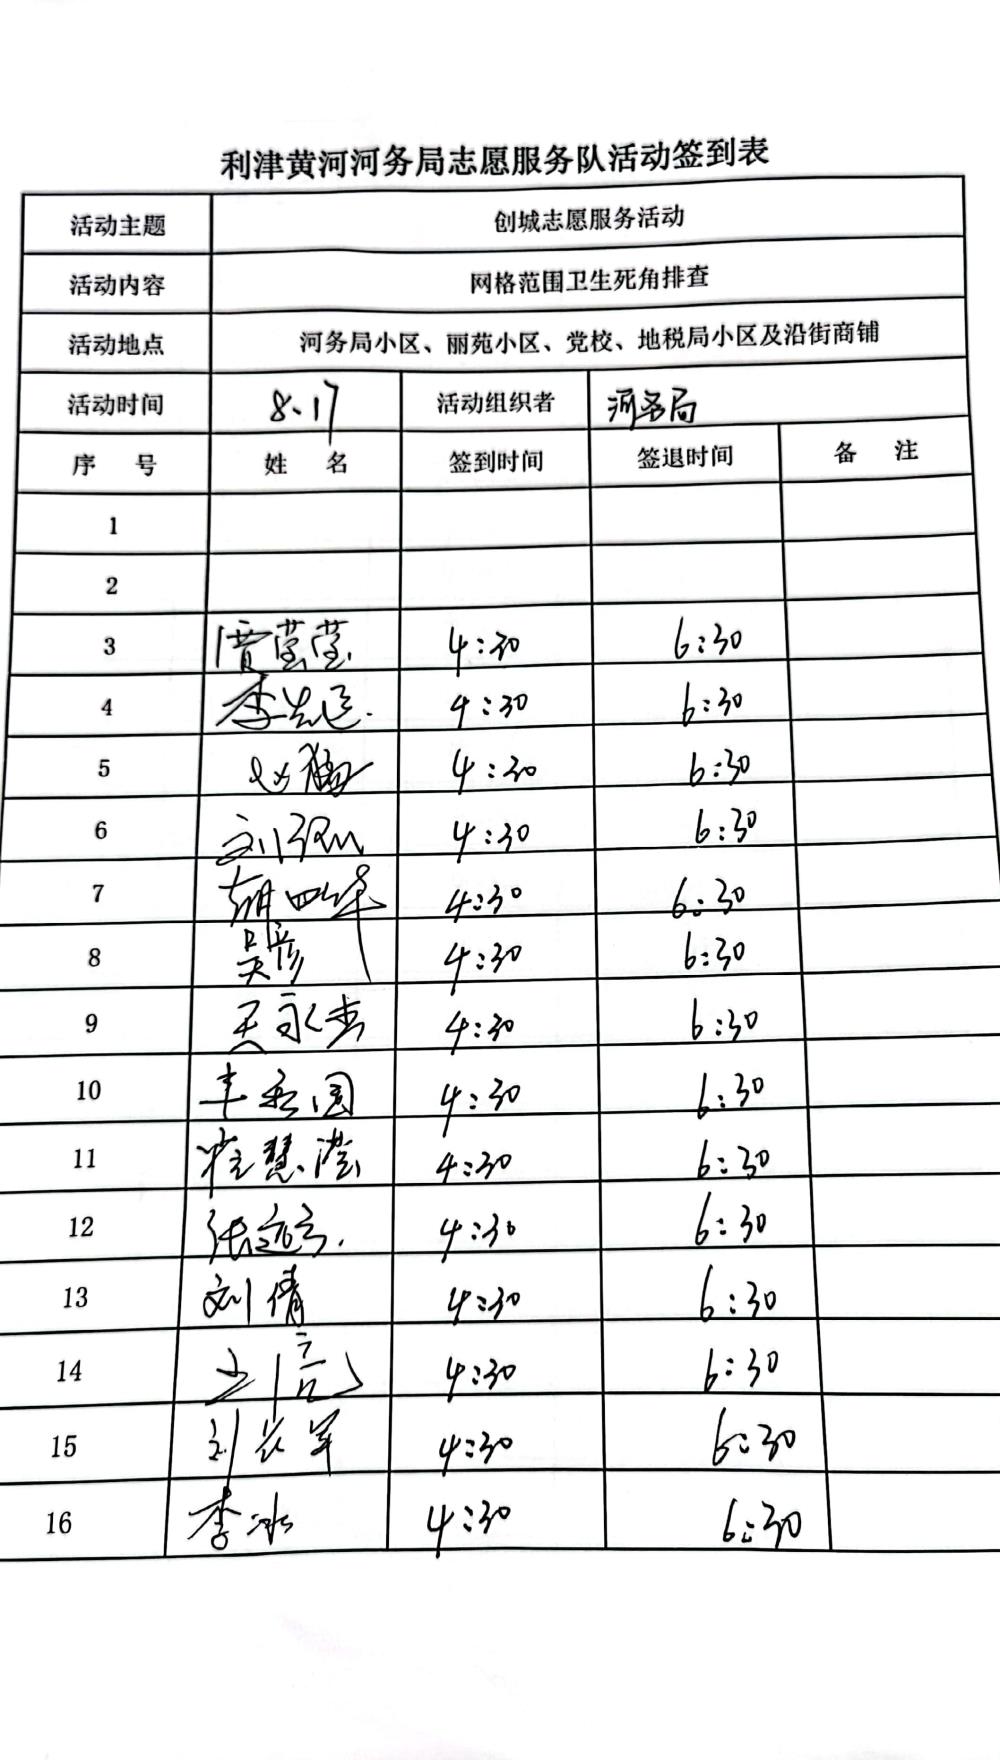 利津黄河河务局志愿服务队活动签到表
活动主题 创城志愿服务活动
活动内容 网格范围卫生死角排查
活动地点 河务局小区、丽苑小区、党校、地税局小区及沿街商铺
活动时间 8.17 活动组织者 河务局
序号 姓名 签到时间 签退时间 备注
1
2
3 贾莹莹 4:30 6:30
4 李先廷 4:30 6:30
5 4:30 6:30
6 刘 4:30 6:30
7 胡四华 4:30 6:30
8 吴彦 4:30 6:30
9 永杰 4:30 6:30
10 国 4:30 6:30
11 慧滢 4:30 6:30
12 张 4:30 6:30
13 刘倩 4:30 6:30
14 王亮 4:30 6:30
15 刘长军 4:30 6:30
16 李冰 4:30 6:30